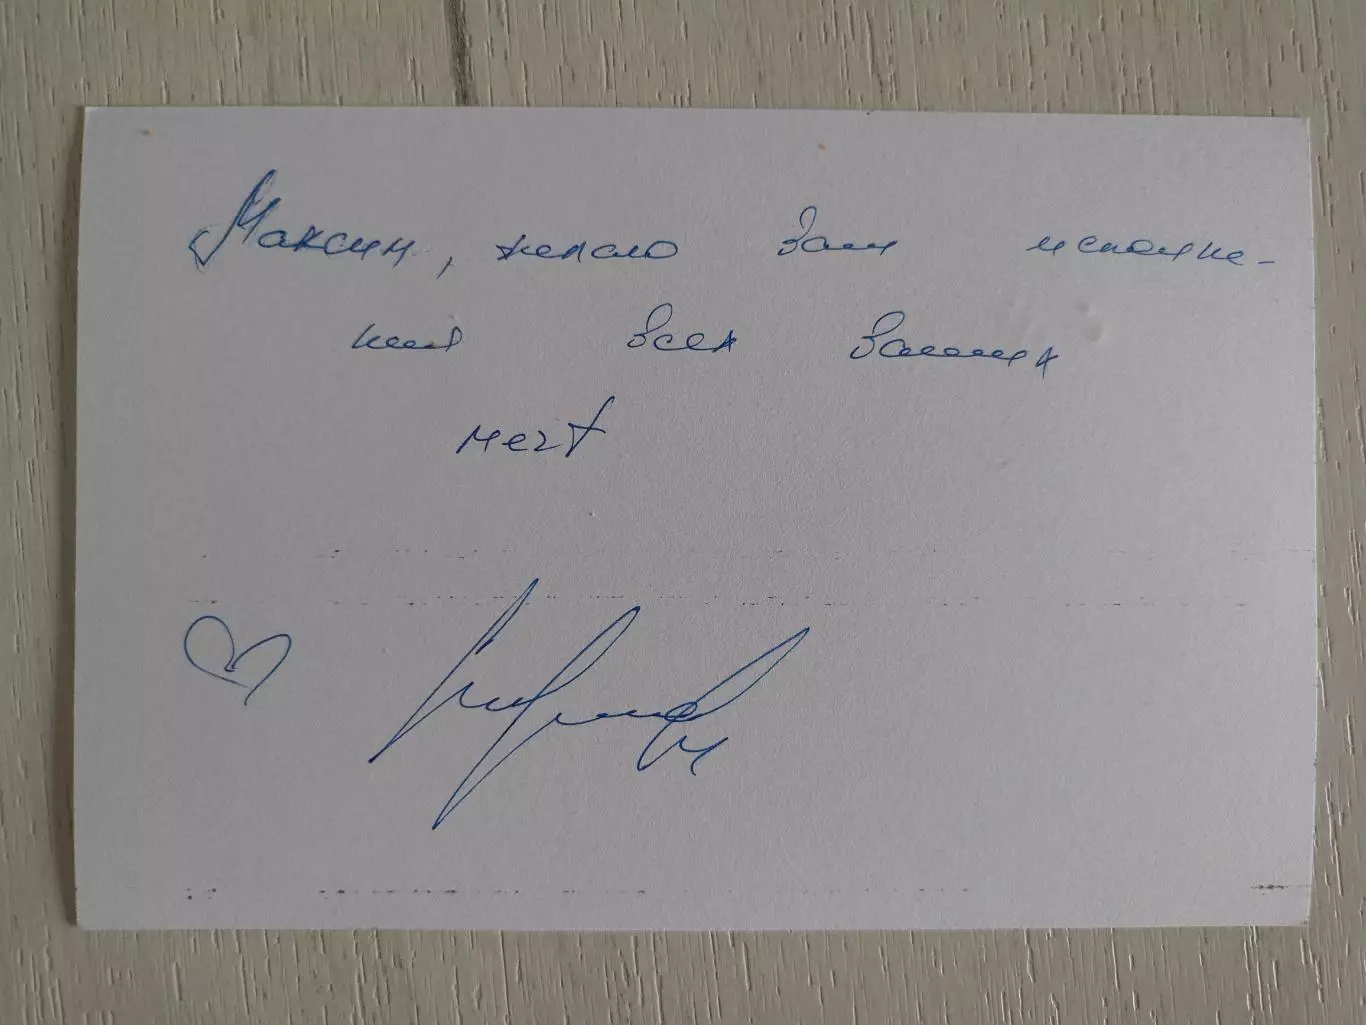 Максим, желаю Вам исполне-
ния всех Ваших
мечт